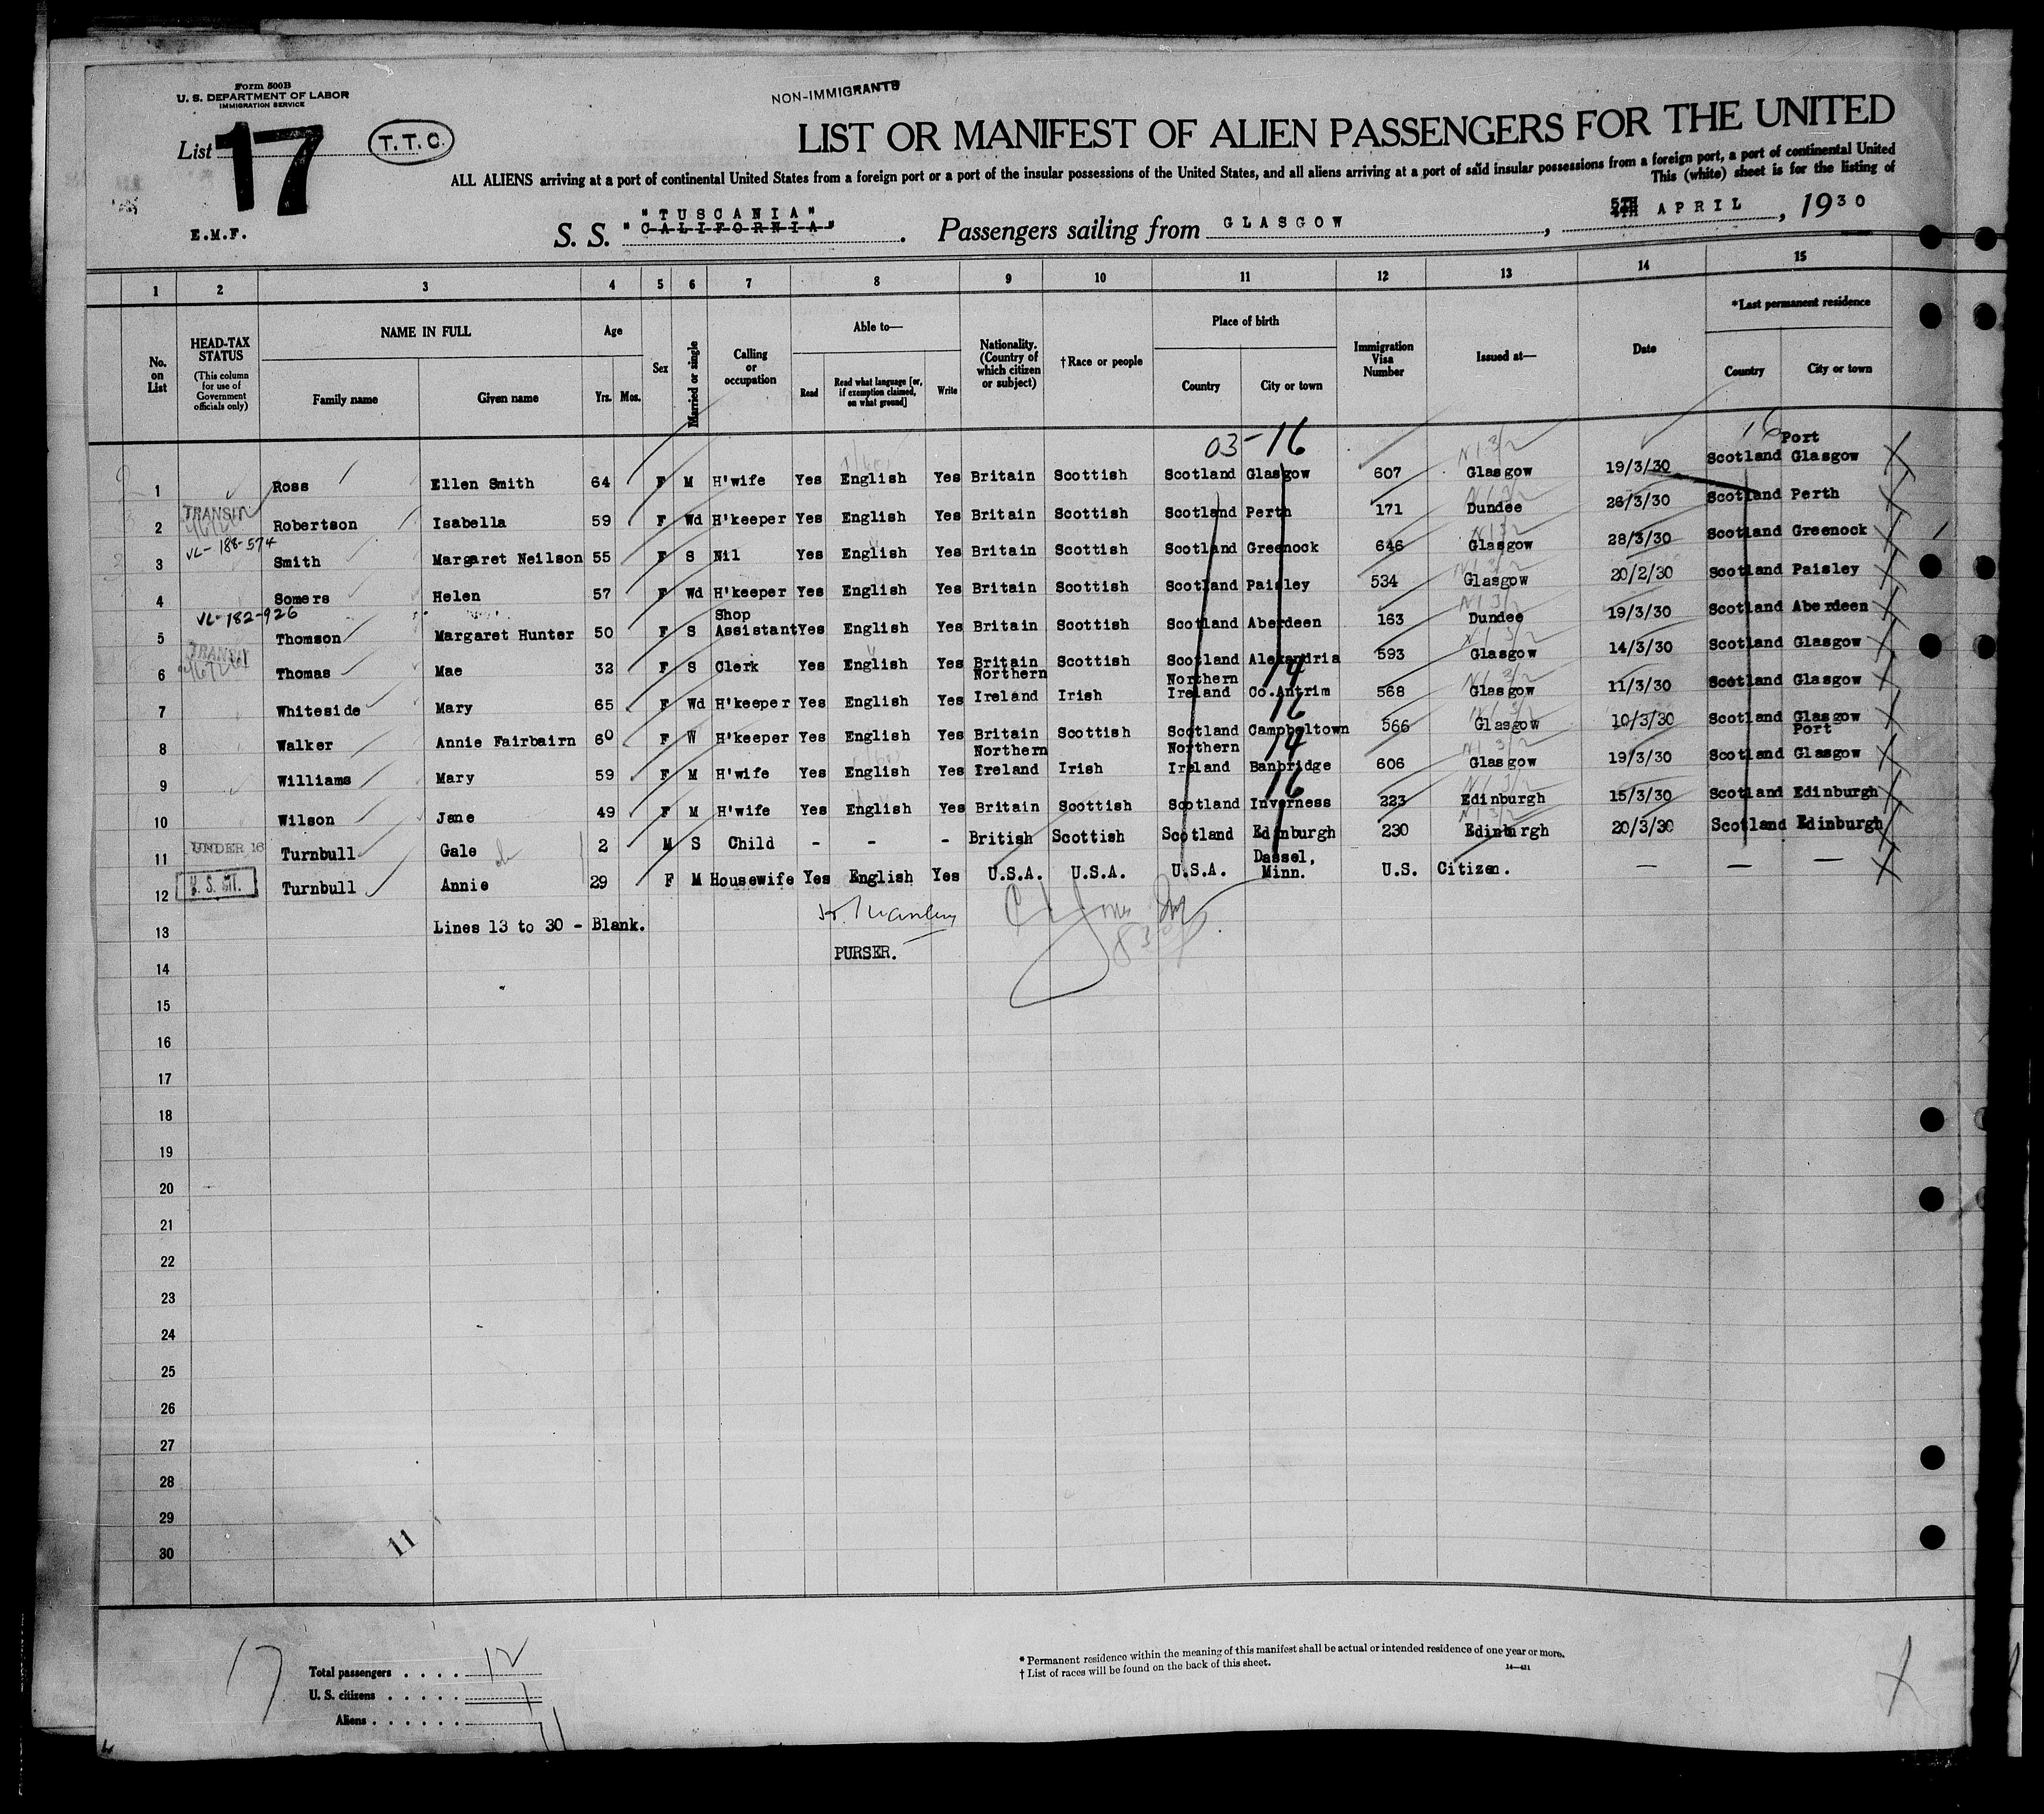 Form 500B
U. S. DEPARTMENT OF LABOR
IMMIGRATION SERVICE
NON-IMMIGRANTS
List 17 T.T.C.
LIST OR MANIFEST OF ALIEN PASSENGERS FOR THE UNITED
ALL ALIENS arriving at a port of continental United States from a foreign port or a port of the insular possessions of the United States, and all aliens arriving at a port of said insular possessions from a foreign port, a port of continental United
This (white) sheet is for the listing of
E.M.F.
"TUSCANIA"
S. S. "CALIFORNIA" . Passengers sailing from GLASGOW , 5TH APRIL , 1930
1 2 3 4 5 6 7 8 9 10 11 12 13 14 15
No. on List
HEAD-TAX STATUS (This column for use of Government officials only)
NAME IN FULL
Family name Given name
Age
Yrs. Mos.
Sex
Married or single
Calling or occupation
Able to—
Read Read what language [or, if exemption claimed, on what ground] Write
Nationality. (Country of which citizen or subject)
†Race or people
Place of birth
Country City or town
Immigration Visa Number
Issued at—
Date
*Last permanent residence
Country City or town
03-16 16
1 Ross Ellen Smith 64 F M H'wife Yes English Yes Britain Scottish Scotland Glasgow 607 Glasgow 19/3/30 Scotland Port Glasgow
TRANSIT
2 Robertson Isabella 59 F Wd H'keeper Yes English Yes Britain Scottish Scotland Perth 171 Dundee 26/3/30 Scotland Perth
VL-188-574
3 Smith Margaret Neilson 55 F S Nil Yes English Yes Britain Scottish Scotland Greenock 646 Glasgow 28/3/30 Scotland Greenock
4 Somers Helen 57 F Wd H'keeper Yes English Yes Britain Scottish Scotland Paisley 534 Glasgow 20/2/30 Scotland Paisley
VL-182-926
5 Thomson Margaret Hunter 50 F S Shop Assistant Yes English Yes Britain Scottish Scotland Aberdeen 163 Dundee 19/3/30 Scotland Aberdeen
TRANSIT
6 Thomas Mae 32 F S Clerk Yes English Yes Britain Scottish Scotland Alexandria 593 Glasgow 14/3/30 Scotland Glasgow
14
7 Whiteside Mary 65 F Wd H'keeper Yes English Yes Northern Ireland Irish Northern Ireland Co.Antrim 568 Glasgow 11/3/30 Scotland Glasgow
16
8 Walker Annie Fairbairn 60 F W H'keeper Yes English Yes Britain Scottish Scotland Campbeltown 566 Glasgow 10/3/30 Scotland Glasgow
14
9 Williams Mary 59 F M H'wife Yes English Yes Northern Ireland Irish Northern Ireland Banbridge 606 Glasgow 19/3/30 Scotland Port Glasgow
16
10 Wilson Jane 49 F M H'wife Yes English Yes Britain Scottish Scotland Inverness 223 Edinburgh 15/3/30 Scotland Edinburgh
11 UNDER 16 Turnbull Gale 2 M S Child - - - British Scottish Scotland Edinburgh 230 Edinburgh 20/3/30 Scotland Edinburgh
12 U. S. CIT. Turnbull Annie 29 F M Housewife Yes English Yes U.S.A. U.S.A. U.S.A. Dassel, Minn. U.S. Citizen. — — —
13 Lines 13 to 30 - Blank.
14 PURSER.
15
16
17
18
19
20
21
22
23
24
25
26
27
28
29
30
11
17
Total passengers . . . . 12
U. S. citizens . . . . . 1
Aliens . . . . . . 11
* Permanent residence within the meaning of this manifest shall be actual or intended residence of one year or more.
† List of races will be found on the back of this sheet.
14—431